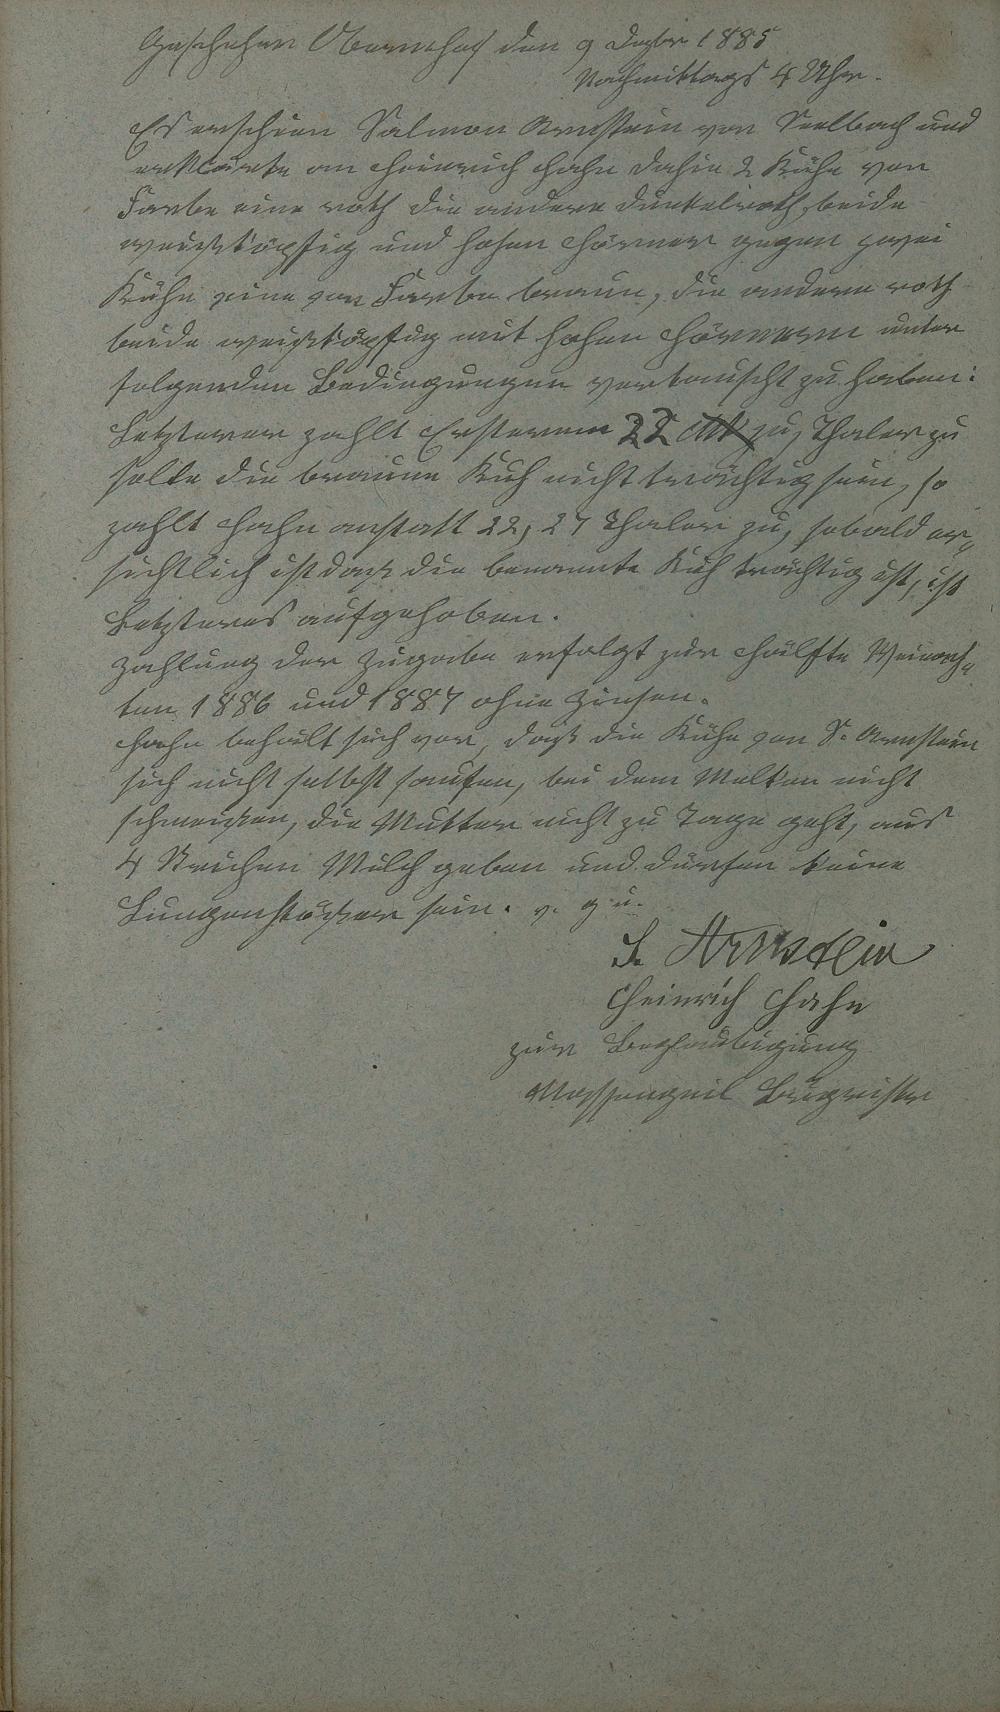 Geschehen Obernhof den 9 Dezbr 1885
Nachmittags 4 Uhr.
Es erschien Salmon Arnstein von Seelbach und
erklärte an Heinrich Hahn dahie 2 Kühe von
Farbe eine roth die andere dunkelroth, beide
weißköpfig und hohen Hörner gegen zwei
Kühe eine von Farbe braun, die andere roth
beide weißköpfig mit hohen Hörnern unter
folgenden Bedingungen vertauscht zu haben:
Letzterer zahlt Ersterem 22 Mk zu, Thaler zu
solte die braune Kuh nicht trächtig sein, so
zahlt Hahn anstatt 22, 27 Thaler zu, sobald er„
sichtlich ist daß die benannte Kuh trächtig ist, ist
Letzteres aufgehoben.
Zahlung der Zugabe erfolgt zur Hälfte Weinach„
ten 1886 und 1887 ohne Zinsen.
Hahn behält sich vor, daß die Kühe von S. Arnstein
sich nicht selbst saufen, bei dem Melken nicht
schmeißen, die Mutter nicht zu Tage geht, aus
4 Strichen Milch geben und dürfen keine
Lungenstößer sein. v. g. u.
S. Arnstein
Heinrich Hahn
zur Beglaubigung
Massengeil Bürgmister